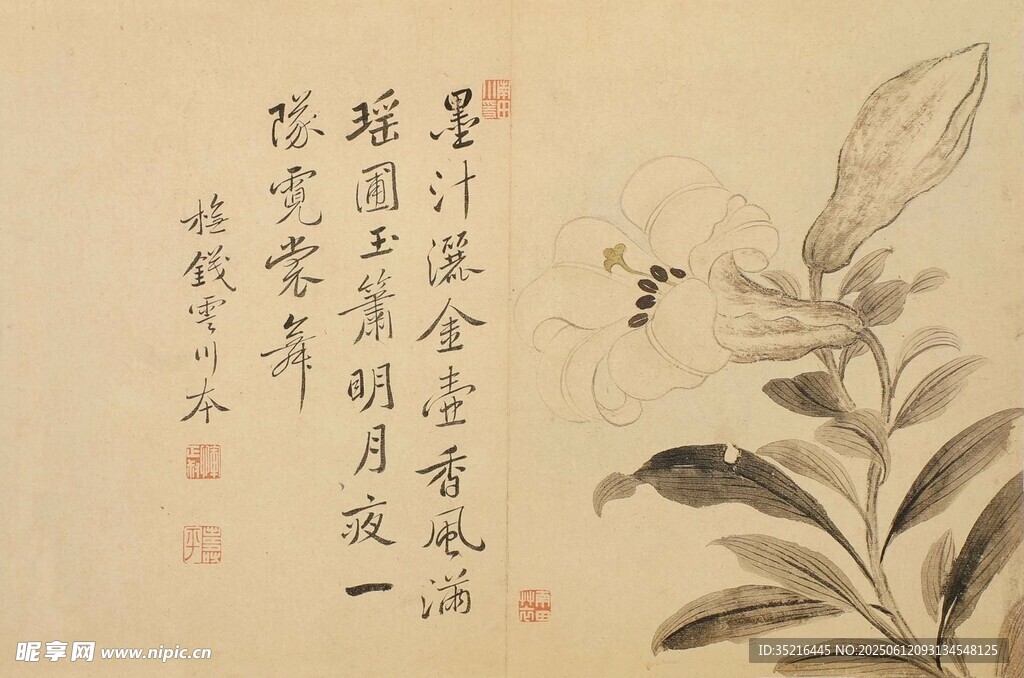 墨汁灑金壺香風滿
瑶圃玉簫明月夜一
隊霓裳舞
橅錢雲川本
壽平
昵享网 www.nipic.cn
ID:35216445 NO:20250612093134548125